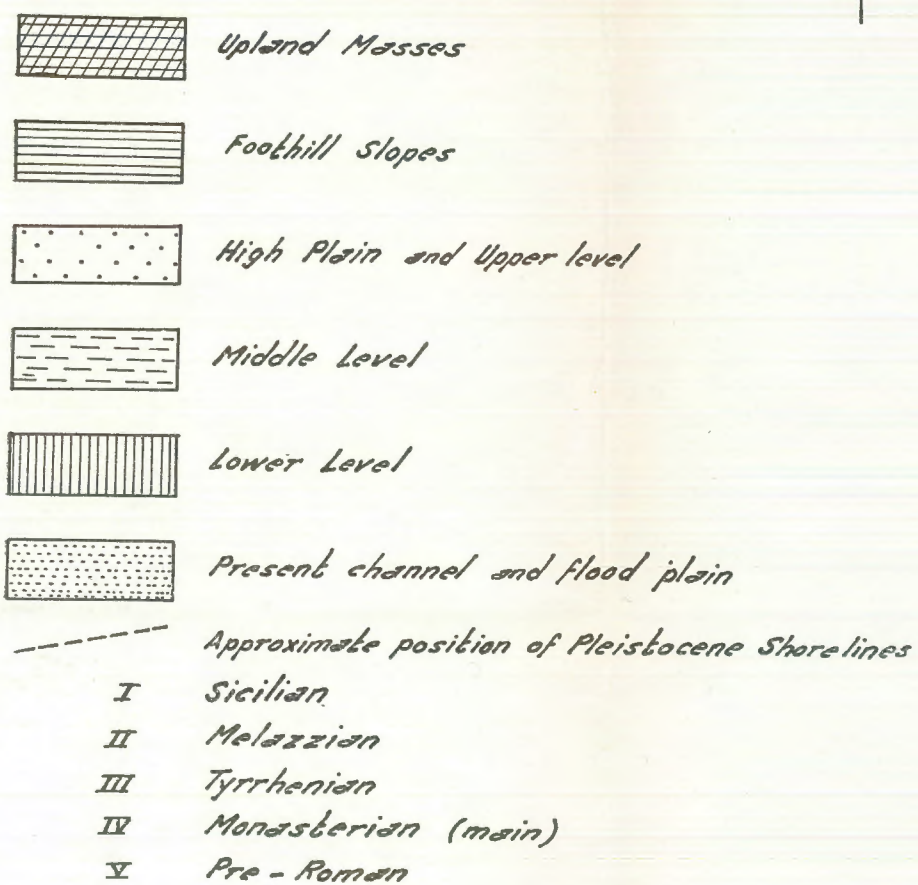 Upland Masses
Foothill Slopes
High Plain and Upper level
Middle Level
Lower Level
Present channel and flood plain
Approximate position of Pleistocene Shorelines
I Sicilian
II Melazzian
III Tyrrhenian
IV Monasterian (main)
V Pre-Roman